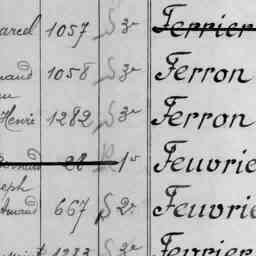 arcel 1057 S 3e Ferrier
mand 1058 S 3e Ferron
Henri 1282 S 3e Ferron
28 1e Feuvrie
seph
Amand 667 S 2e Feuvrie
1283 S 3e Fevrier